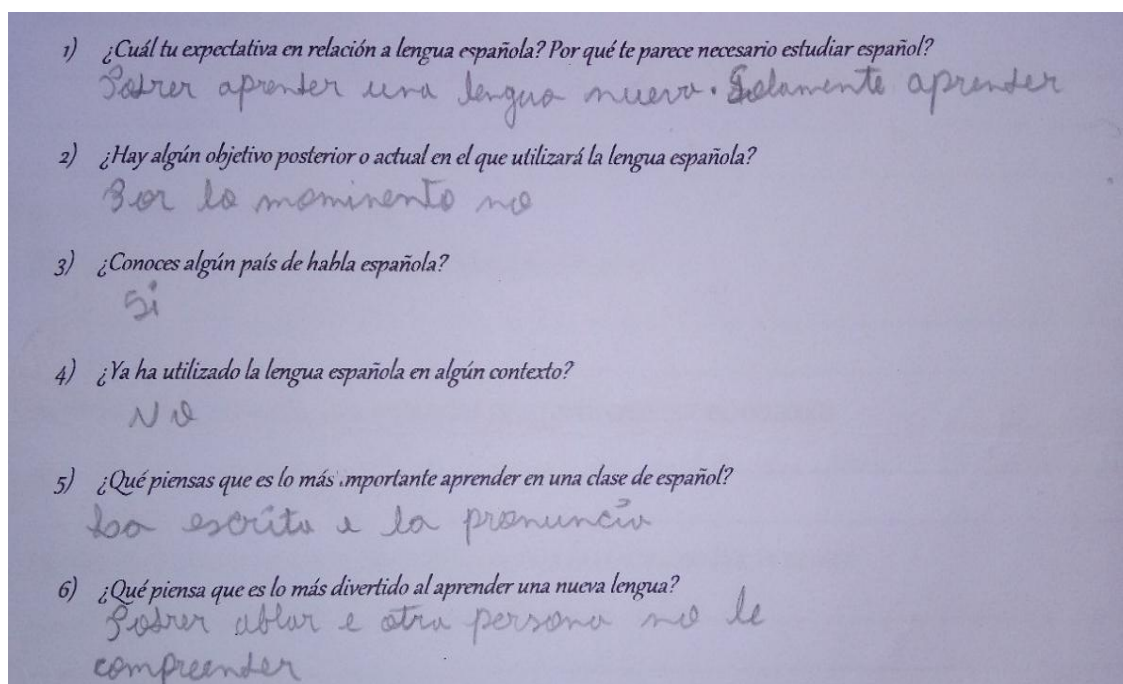 1) ¿Cuál tu expectativa en relación a lengua española? Por qué te parece necesario estudiar español?
Podrer aprender una lengua nueva. Solamente aprender
2) ¿Hay algún objetivo posterior o actual en el que utilizará la lengua española?
Por lo mominento no
3) ¿Conoces algún país de habla española?
Si
4) ¿Ya ha utilizado la lengua española en algún contexto?
No
5) ¿Qué piensas que es lo más .mportante aprender en una clase de español?
La escrita e la pronuncia
6) ¿Qué piensa que es lo más divertido al aprender una nueva lengua?
Podrer ablar e otra persona no le
compreender